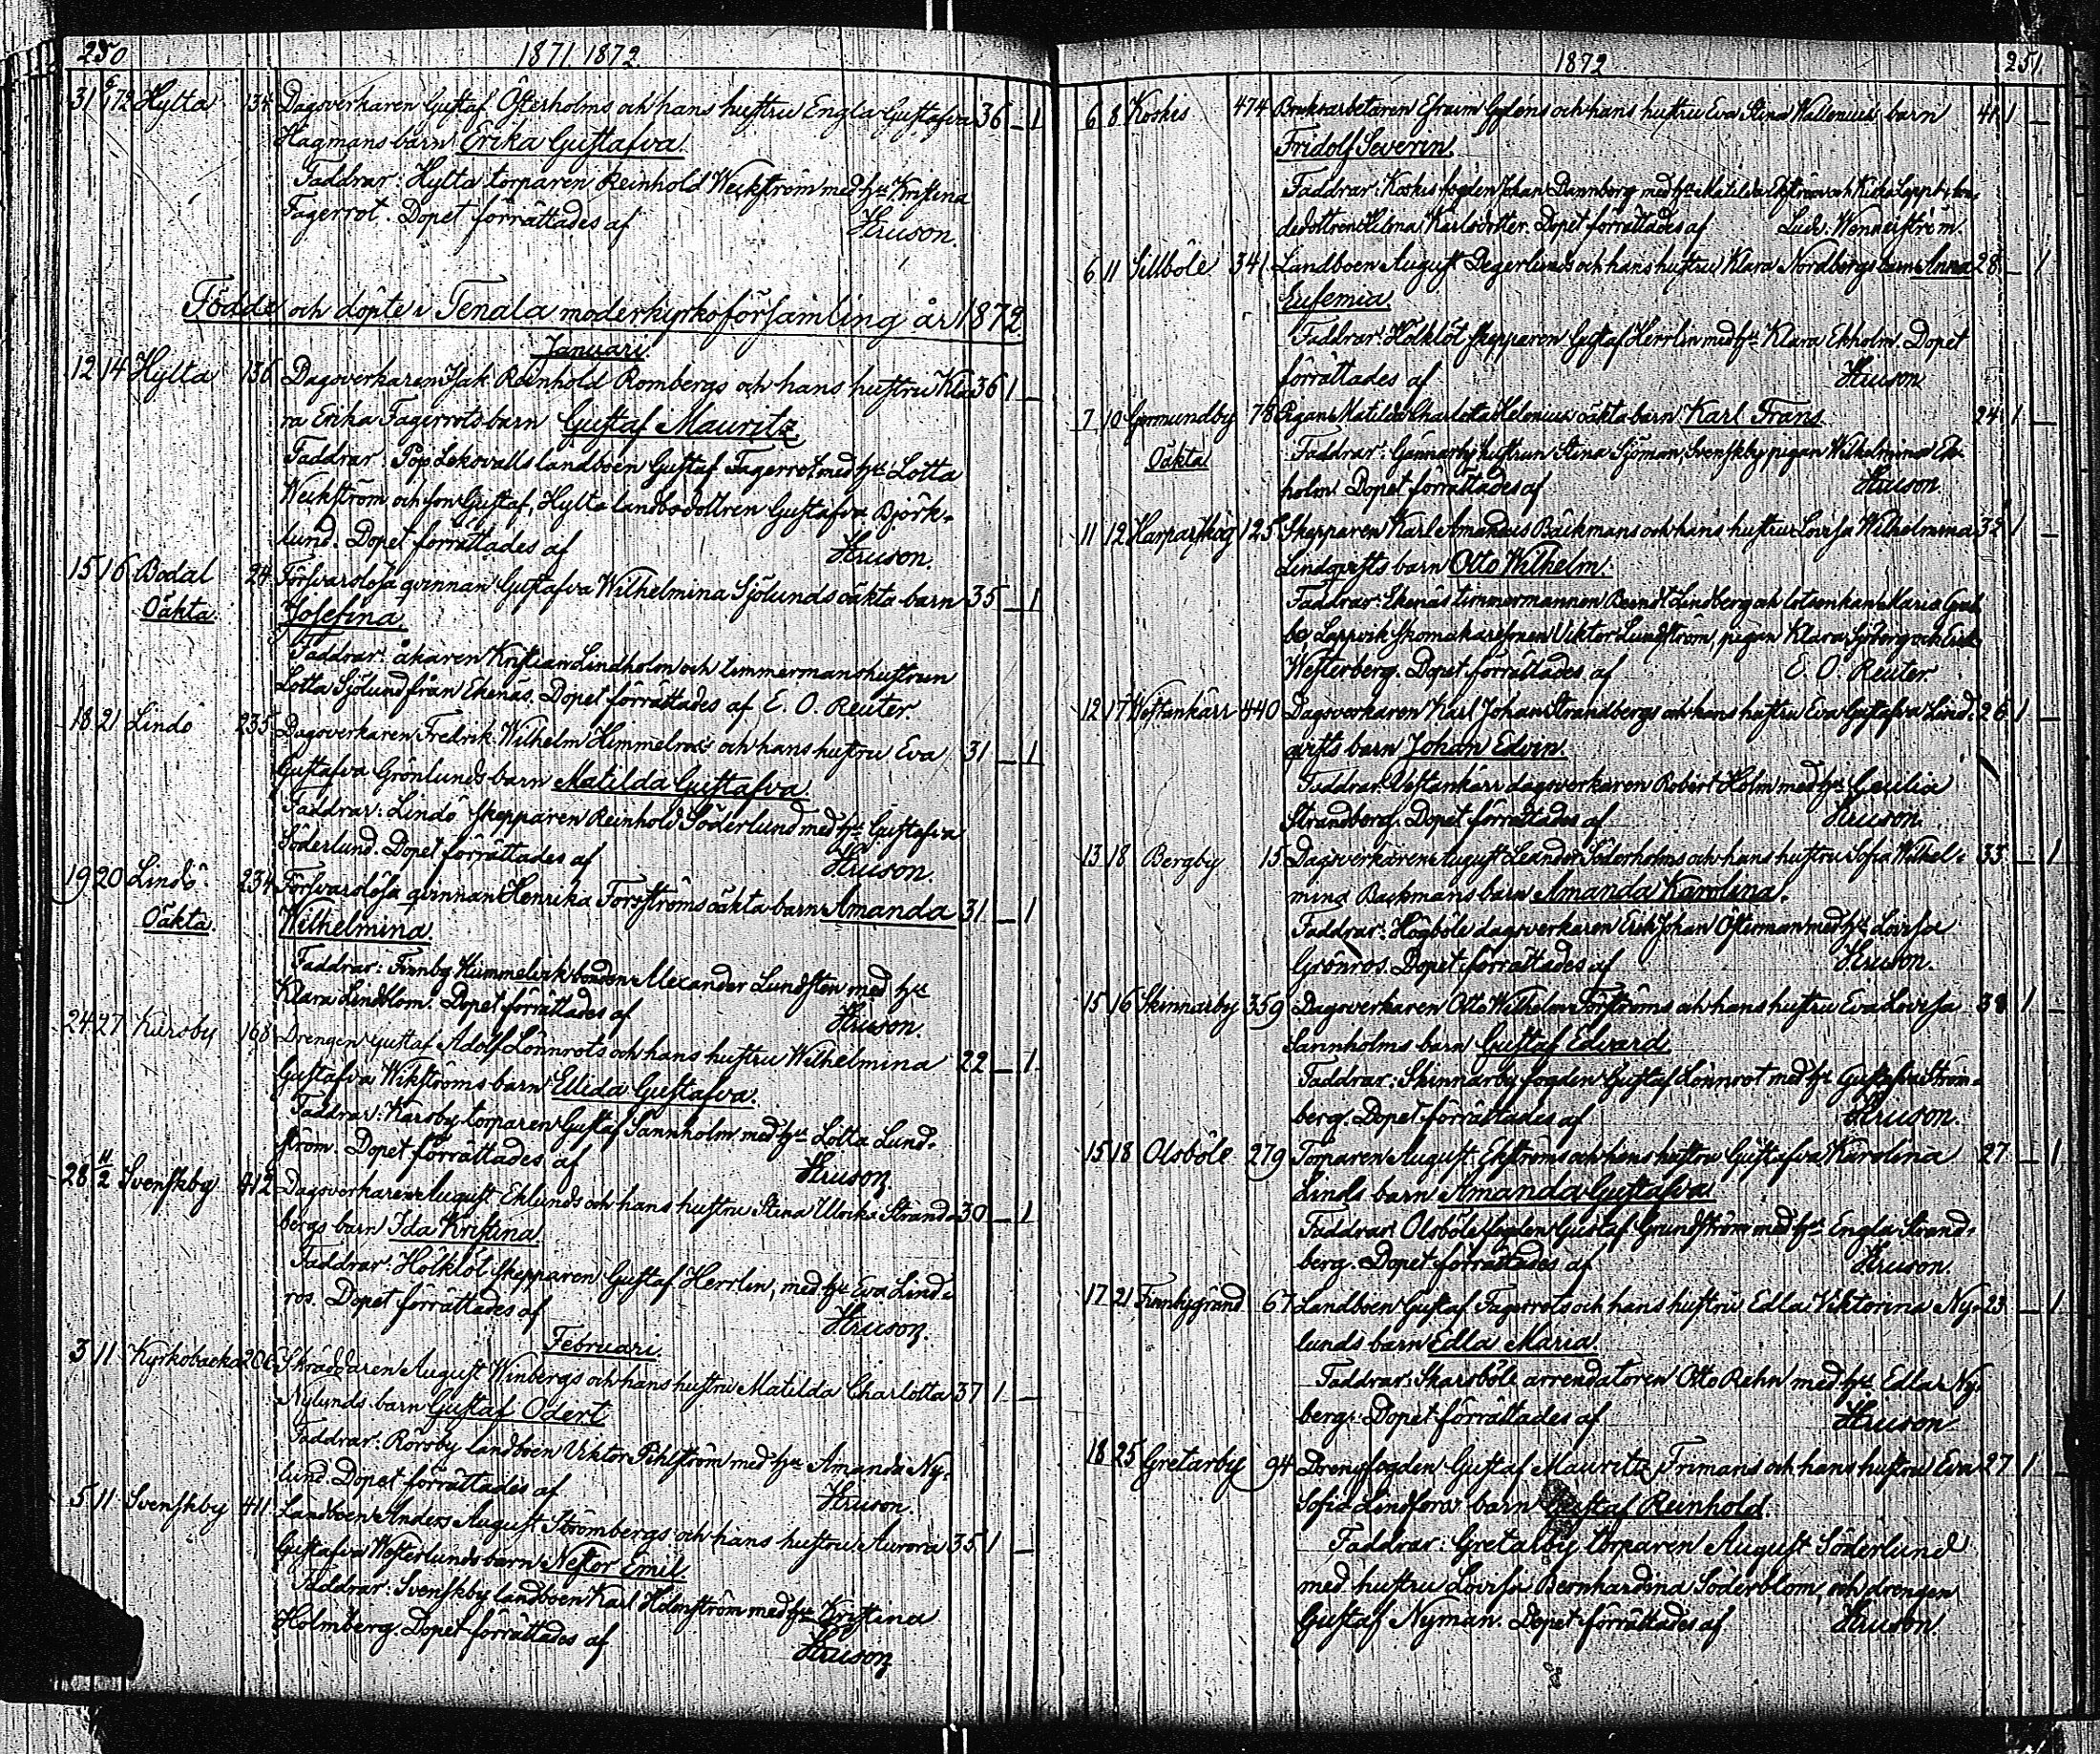 250
1871 1872
31 6/1 72 Hylta 134 Dagsverkaren Gustaf Österholms och hans hustru Engla Gustafva 36 – 1
Hagmans barn Erika Gustafva.
Faddrar: Hylta torparen Reinhold Weckström med h:u Kristina
Fagerrot. Dopet förrättades af Hruson.
Födde och döpte i Tenala moderkyrkoförsamling år 1872
Januari.
12 14 Hylta 136 Dagsverkaren Isak Reinhold Rombergs och hans hustru Kla- 36 1 –
ra Erika Fagerrots barn Gustaf Mauritz
Faddrar: Pop Lekovalls landboen Gustaf Fagerrot med h:u Lotta
Weckström och son Gustaf, Hylta landbodottren Gustafva Björk-
lund. Dopet förrättades af Hruson.
15 16 Bodal 24 Försvarslösa qvinnan Gustafva Wilhelmina Sjölunds oäkta barn 35 – 1
Oäkta. Josefina.
Faddrar: åkaren Kristian Lindholm och timmermanshustrun
Lotta Sjölund från Ekenäs. Dopet förrättades af E. O. Reuter.
18 21 Lindö 235 Dagsverkaren Fredrik Wilhelm Himmelroos och hans hustru Eva 31 – 1
Gustafva Grönlunds barn Matilda Gustafva.
Faddrar: Lindö skepparen Reinhold Söderlund med h:u Gustafva
Söderlund. Dopet förrättades af Hruson.
19 20 Lindö 234 Försvarslösa qvinnan Henrika Forsströms oäkta barn Amanda 31 – 1
Oäkta. Wilhelmina.
Faddrar: Finnby Kummelvik bonden Alexander Lundsten med h:u
Klara Lindblom. Dopet förrättades af Hruson.
24 27 Karsby 168 Drengen Gustaf Adolf Lönnrots och hans hustru Wilhelmina 22 – 1
Gustafva Wikströms barn Ellida Gustafva.
Faddrar: Karsby torparen Gustaf Sannholm med h:u Lotta Lund-
ström. Dopet förrättades af Hruson
28 11/2 Svenskby 412 Dagsverkaren August Ehlunds och hans hustru Stina Ulrika Strand- 30 – 1
bergs barn Ida Kristina
Faddrar: Hölklöt skepparen Gustaf Herrlin, med h:u Eva Lind-
ros. Dopet förrättades af Hruson.
Februari.
3 11 Kyrkobacka 206 Skräddaren August Winbergs och hans hustru Matilda Charlotta 37 1 –
Nylunds barn Gustaf Odert
Faddrar: Rörsby landboen Viktor Pihlström med h:u Amanda Ny-
lund. Dopet förrättades af Hruson.
5 11 Svenskby 411 Landboen Anders August Strömbergs och hans hustru Aurora 35 1 –
Gustafva Westerlunds barn Nestor Emil
Faddrar: Svenskby landboen Karl Holmström med h:u Kristina
Holmberg. Dopet förrättades af Hruson
1872
251
6 8 Koskis 474 Bruksarbetaren Efraim Gyléns och hans hustru Eva Stina Wallenius barn 41 1 –
Fridolf Severin.
Faddrar: Koskis fogden Johan Dannborg med h:u Matilda och Kiska
dedottren Helena Karlsdotter. Dopet förrättades af Ludv. Wennerström.
6 11 Sillböle 341 Landboen August Degerlunds och hans hustru Klara Nordbergs barn Anna 28 – 1
Eufemia.
Faddrar: Hölklöt skepparen Gustaf Herrlin med h:u Klara Ekholm. Dopet
förrättades af Hruson
7 10 Germundby 78 Pigan Matilda Charlotta Helenius oäkta barn Karl Frans. 24 1 –
Oäkta. Faddrar: Gännarby hustrun Stina Sjöman, Svenskby pigan Wilhelmina Ek-
holm. Dopet förrättades af Hruson.
11 12 Harparskog 125 Skepparen Karl Amandus Bäckmans och hans hustru Lovisa Wilhelmina 32 1 –
Lindqvists barn Otto Wilhelm.
Faddrar: Ekenäs timmermannen Berndt Lindberg och Maria
Lappvik skomakaresonen Viktor Lundström, pigan Klara Sjöberg och
Westerberg. Dopet förrättades af E. O. Reuter
12 17 Westankärr 440 Dagsverkaren Karl Johan Strandbergs och hans hustru Eva Gustafva Lind- 26 1 –
qvists barn Johan Edvin.
Faddrar: Vestankärr dagsverkaren Robert Holm med h:u Cecilia
Strandberg. Dopet förrättades af Hruson.
13 18 Bergby 15 Dagsverkaren August Leander Söderholms och hans hustru Sofia Wilhel- 33 – 1
mina Backmans barn Amanda Karolina.
Faddrar: Högböle dagsverkaren Erik Johan Österman med h:u Lovisa
Grönros. Dopet förrättades af Hruson.
15 16 Skinnarby 359 Dagsverkaren Otto Wilhelm Forsströms och hans hustru Eva Lovisa 38 1 –
Sannholms barn Gustaf Edvard.
Faddrar: Skinnarby fogden Gustaf Lönnrot med h:u Gustafva Ström-
berg. Dopet förrättades af Hruson.
15 18 Olsböle 279 Torparen August Ekströms och hans hustru Gustafva Karolina 27 – 1
Linds barn Amanda Gustafva.
Faddrar: Olsböle fogden Gustaf Grundström med h:u Engla Strand-
berg. Dopet förrättades af Hruson.
17 21 Finnbygränd 67 Landboen Gustaf Fagerrots och hans hustru Edla Viktorina Ny- 23 – 1
lunds barn Edla Maria.
Faddrar: Skarsböle arrendatoren Otto Rehn med h:u Edla Ny-
berg. Dopet förrättades af Hruson
18 25 Gretarby 94 Drengfogden Gustaf Mauritz Frimans och hans hustru Eva 27 1 –
Sofia Lindfors barn Gustaf Reinhold.
Faddrar: Gretarby torparen August Söderlund
med hustru Lovisa Bernhardina Söderblom, och drengen
Gustaf Nyman. Dopet förrättades af Hruson.